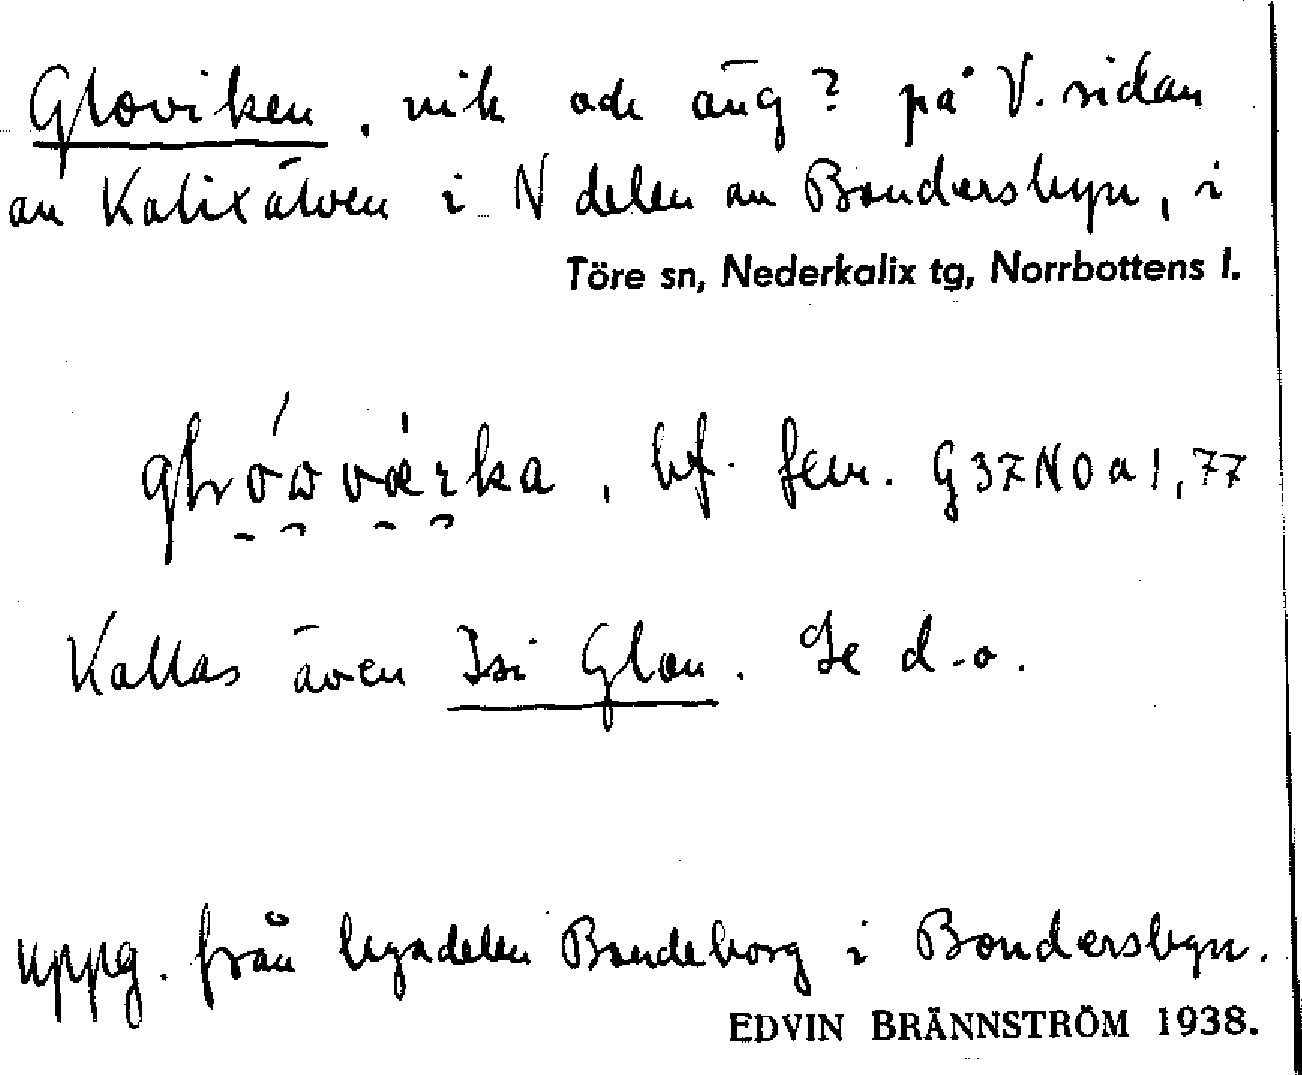 Gloviken, vik och äng? på V. sidan
av Kalixälven i N delen av Bondersbyn, i
Töre sn, Nederkalix tg, Norrbottens l.
bf. fem. G37N0a1,77
Kallas även Isi Glon. Se d.o.
uppg. från byadelen Bondeborg i Bondersbyn.
EDVIN BRÄNNSTRÖM 1938.